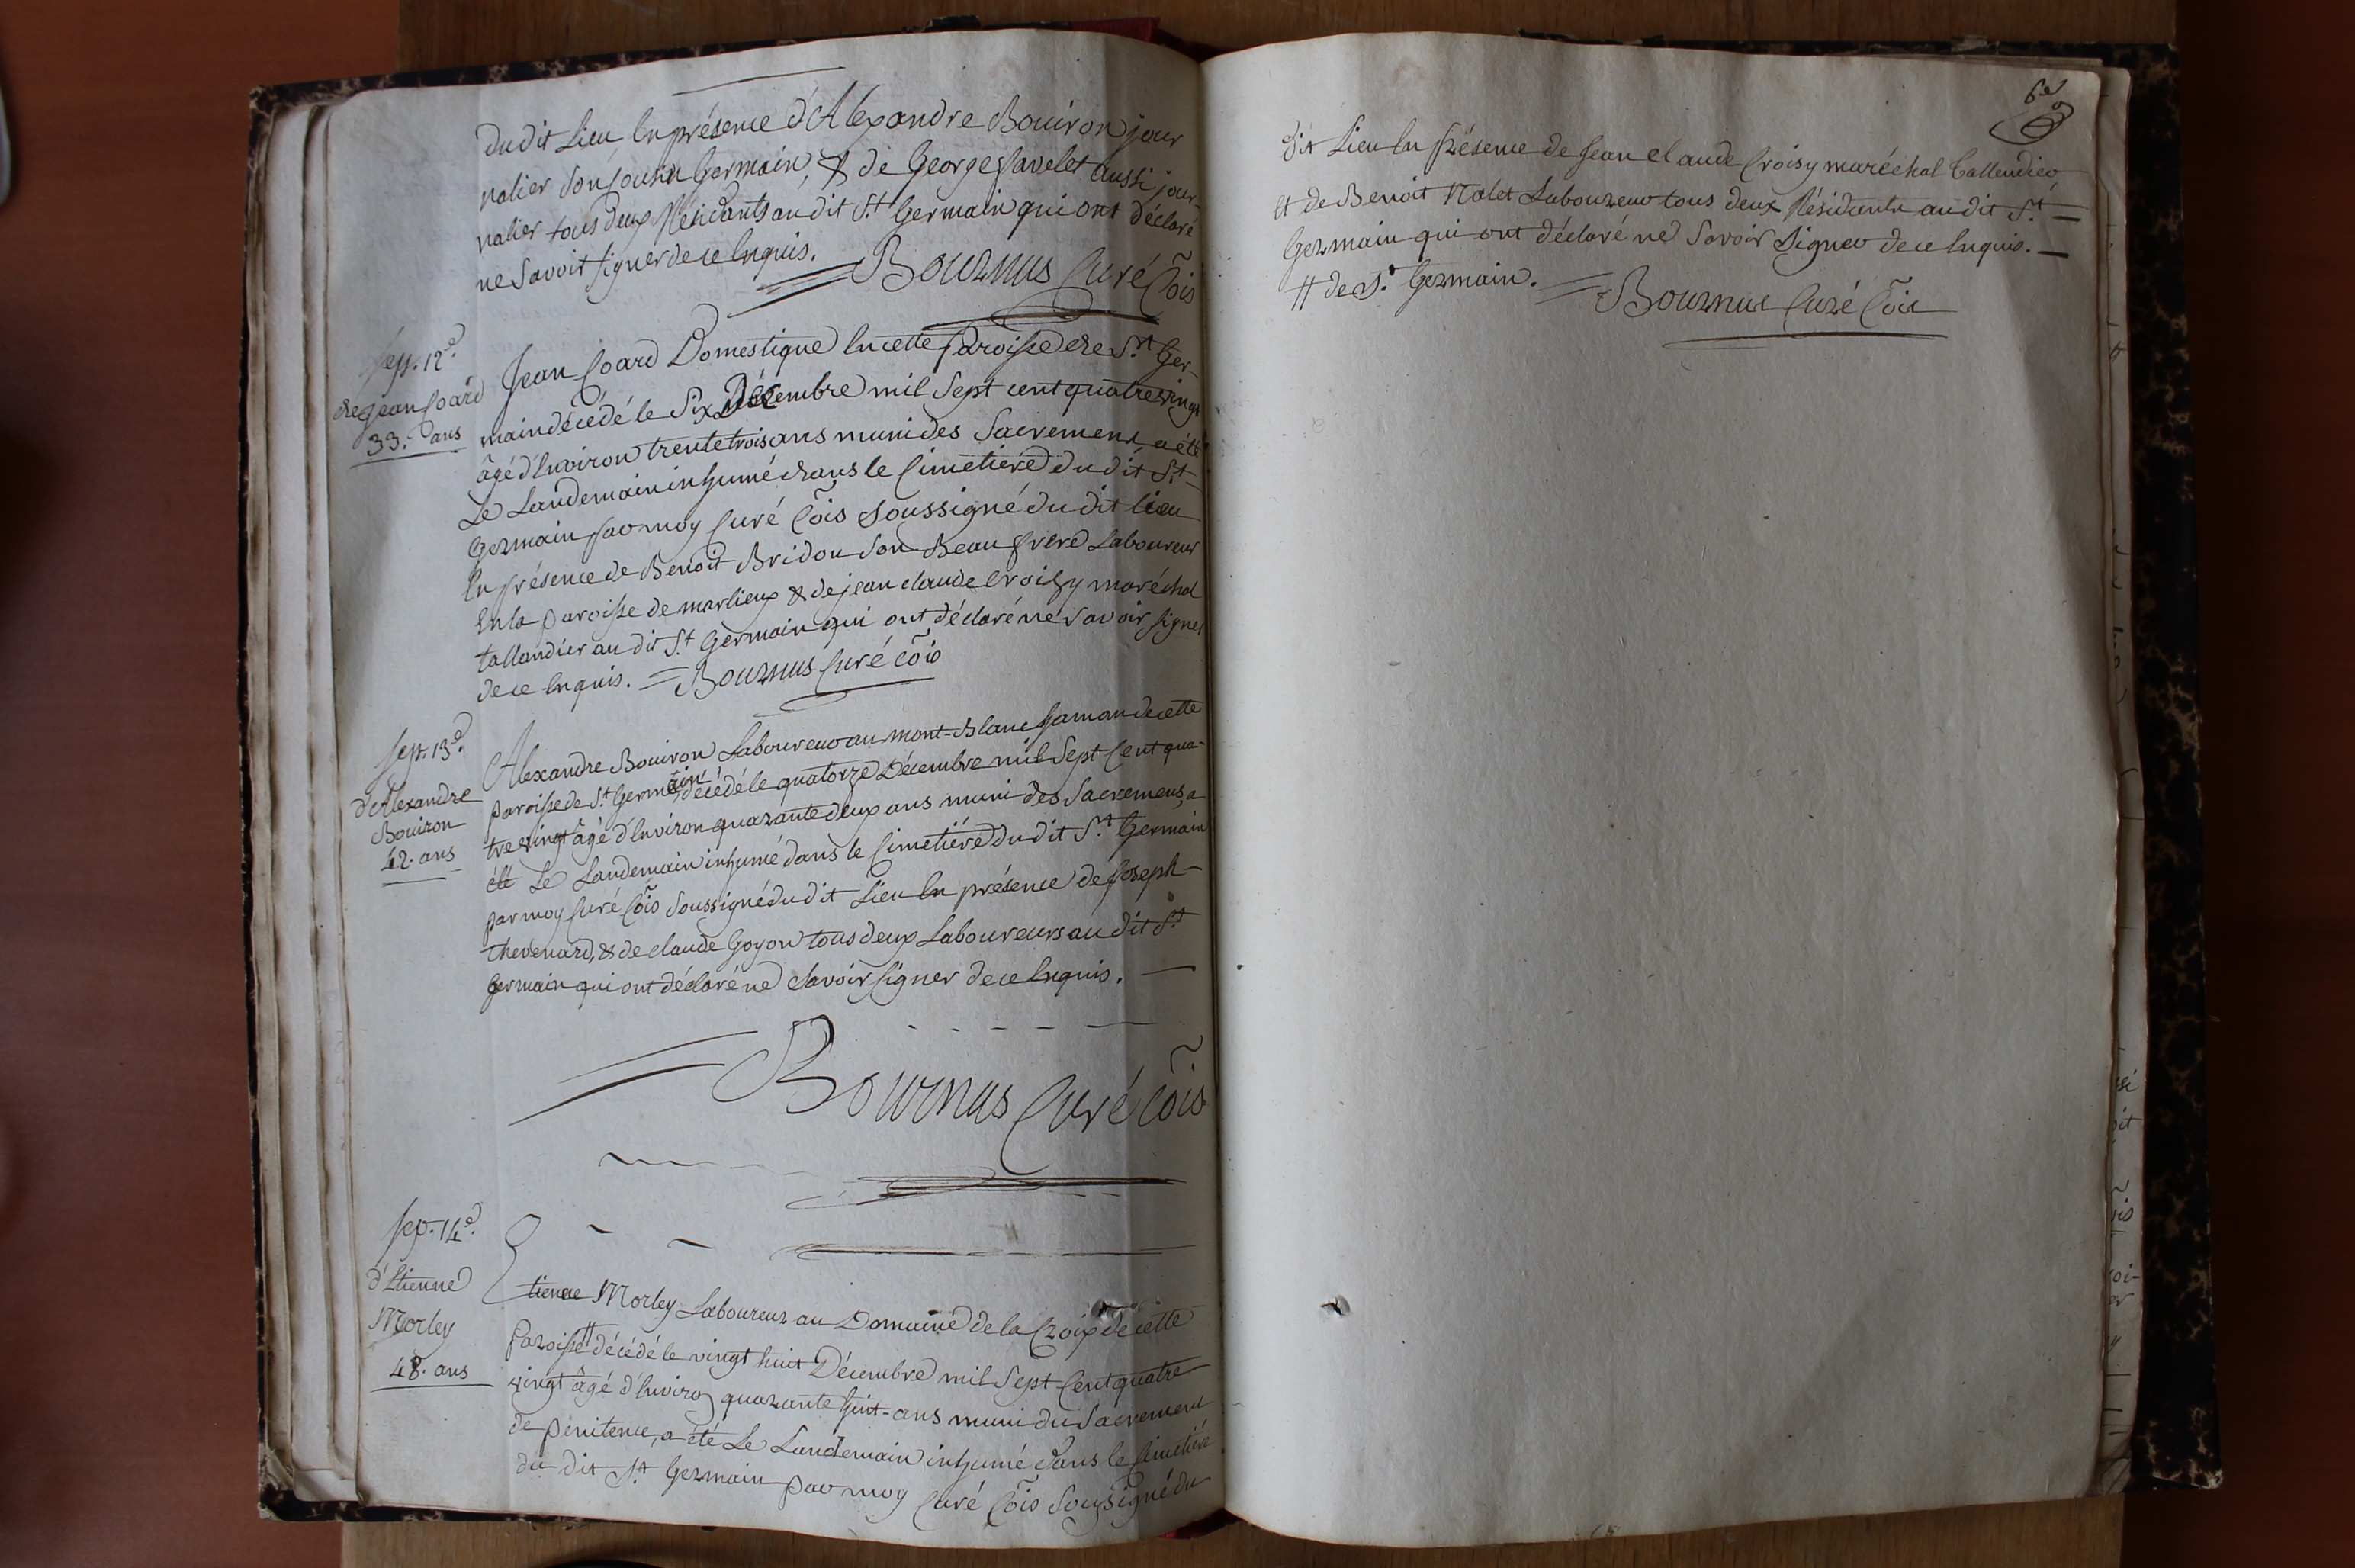 du dit Lieu En présence d'Alexandre Bouiron jour
nalier Son Cousin Germain, & de George Javelet aussi jour-
nalier tous deux Résidants au dit S.t Germain qui ont déclaré
ne Savoir signer de ce Enquis. Bournus Curé Cõis
sep. 12.e
de Jean Coard
33. ans
Jean Coard Domestique En cette Paroisse de S.t Ger-
main décédé le Six Décembre mil Sept cent quatre vingt
âgé d'Environ trente trois ans muni des Sacremens, a été
Le Landemain inhumé dans le Cimetiére du dit S.t
Germain par moy Curé Cõis Soussigné du dit lieu
En présence de Benoit Bridon Son Beau frere Laboureur
En la paroisse de marlieux & de jean claude Croisy maréchal
tallandier au dit S.t Germain qui ont déclaré ne Savoir signer
de ce Enquis. = Bournus Curé Cõis
sep. 13.e
d'Alexandre
Bouiron
42. ans
Alexandre Bouiron Laboureur au mont-Blanc de cette
paroisse de S.t Germain décédé le quatorze Décembre mil Sept Cent qua-
tre vingt âgé d'Environ quarante deux ans muni des Sacremens, a
été Le Landemain inhumé dans le Cimetiére du dit S.t Germain
par moy Curé Cõis Soussigné du dit Lieu En présence de Joseph
Thevenard, & de claude Goyon tous deux Laboureurs au dit S.t
Germain qui ont déclaré ne Savoir signer de ce Enquis.
Bournus Curé Cõis
sep. 14.e
d'Etienne
Morley
48. ans
Etienne Morley Laboureur au Domaine de la Croix de cette
Paroisse # décédé le vingt huit Décembre mil Sept Cent quatre
vingt âgé d'Environ quarante huit ans muni du Sacrement
de pénitence, a été Le Landemain inhumé dans le Cimetiére
du dit S.t Germain par moy Curé Cõis Soussigné du
6e
dit Lieu En Présence de Jean Claude Croisy maréchal Tallendier
et de Benoit Nolet Laboureur tous deux Résidents au dit S.t
Germain qui ont déclaré ne Savoir Signer de ce Enquis.
# de S.t Germain. = Bournus Curé Cõis